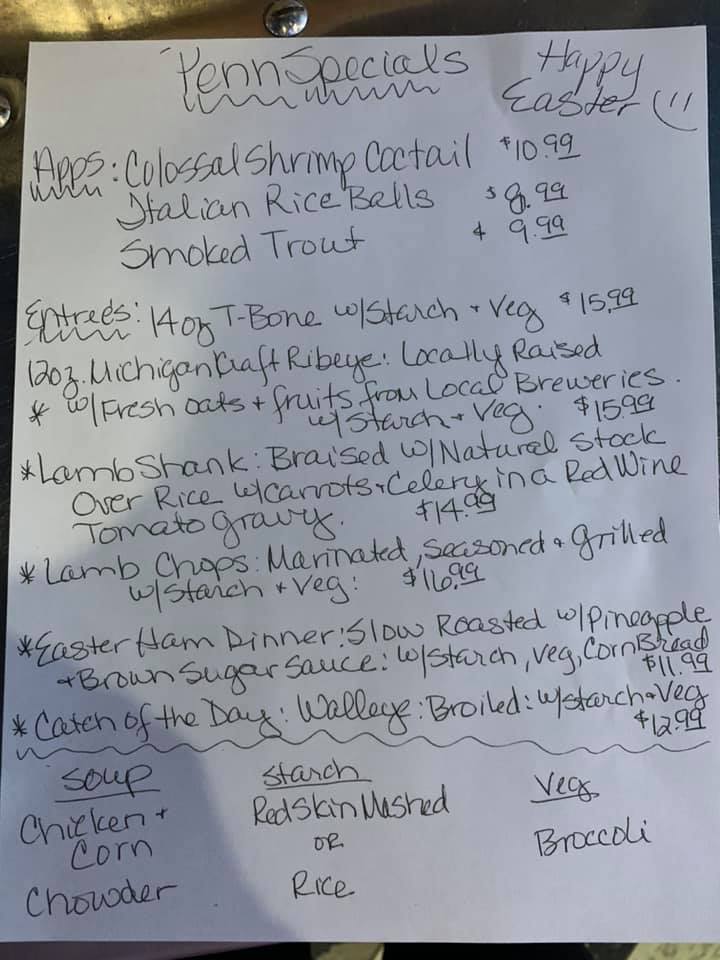 Penn Specials
Happy
Easter (!!
Apps: Colossal Shrimp Coctail $10.99
Italian Rice Balls $8.99
Smoked Trout $9.99
Entrees: 14oz T-Bone w/Starch + Veg $15.99
12oz. Michigan Craft Ribeye: Locally Raised
* w/Fresh oats + fruits from Local Breweries.
w/Starch + Veg. $15.99
*Lamb Shank: Braised w/Natural Stock
Over Rice w/carrots + Celery in a Red Wine
Tomato gravy. $14.99
*Lamb Chops: Marinated, Seasoned + grilled
w/Starch + Veg: $16.99
*Easter Ham Dinner: Slow Roasted w/Pineapple
+ Brown Sugar Sauce: w/starch, veg, Corn Bread
$11.99
*Catch of the Day: Walleye: Broiled: w/starch + Veg
$12.99
Soup
Chicken +
Corn
Chowder
Starch
Redskin Mashed
OR
Rice
Veg
Broccoli